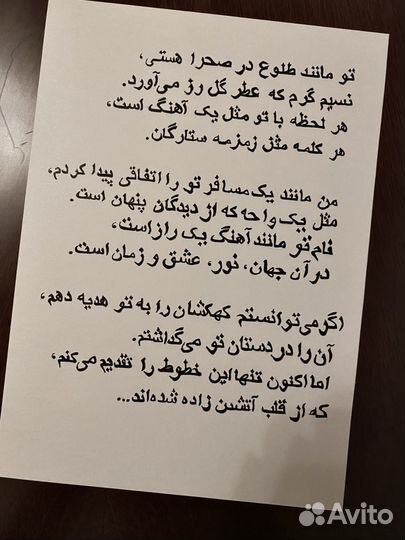 تو مانند طلوع در صحرا هستی،
نسیم گرم که عطر گل رز می‌آورد.
هر لحظه با تو مثل یک آهنگ است،
هر کلمه مثل زمزمه ستارگان.
من مانند یک مسافر تو را اتفاقی پیدا کردم،
مثل یک واحه که از دیدگان پنهان است.
نام تو مانند آهنگ یک راز است،
در آن جهان، نور، عشق و زمان است.
اگر می‌توانستم کهکشان را به تو هدیه دهم،
آن را در دستان تو می‌گذاشتم.
اما اکنون تنها این خطوط را تقدیم می‌کنم،
که از قلب آتشین زاده شده‌اند...
Avito